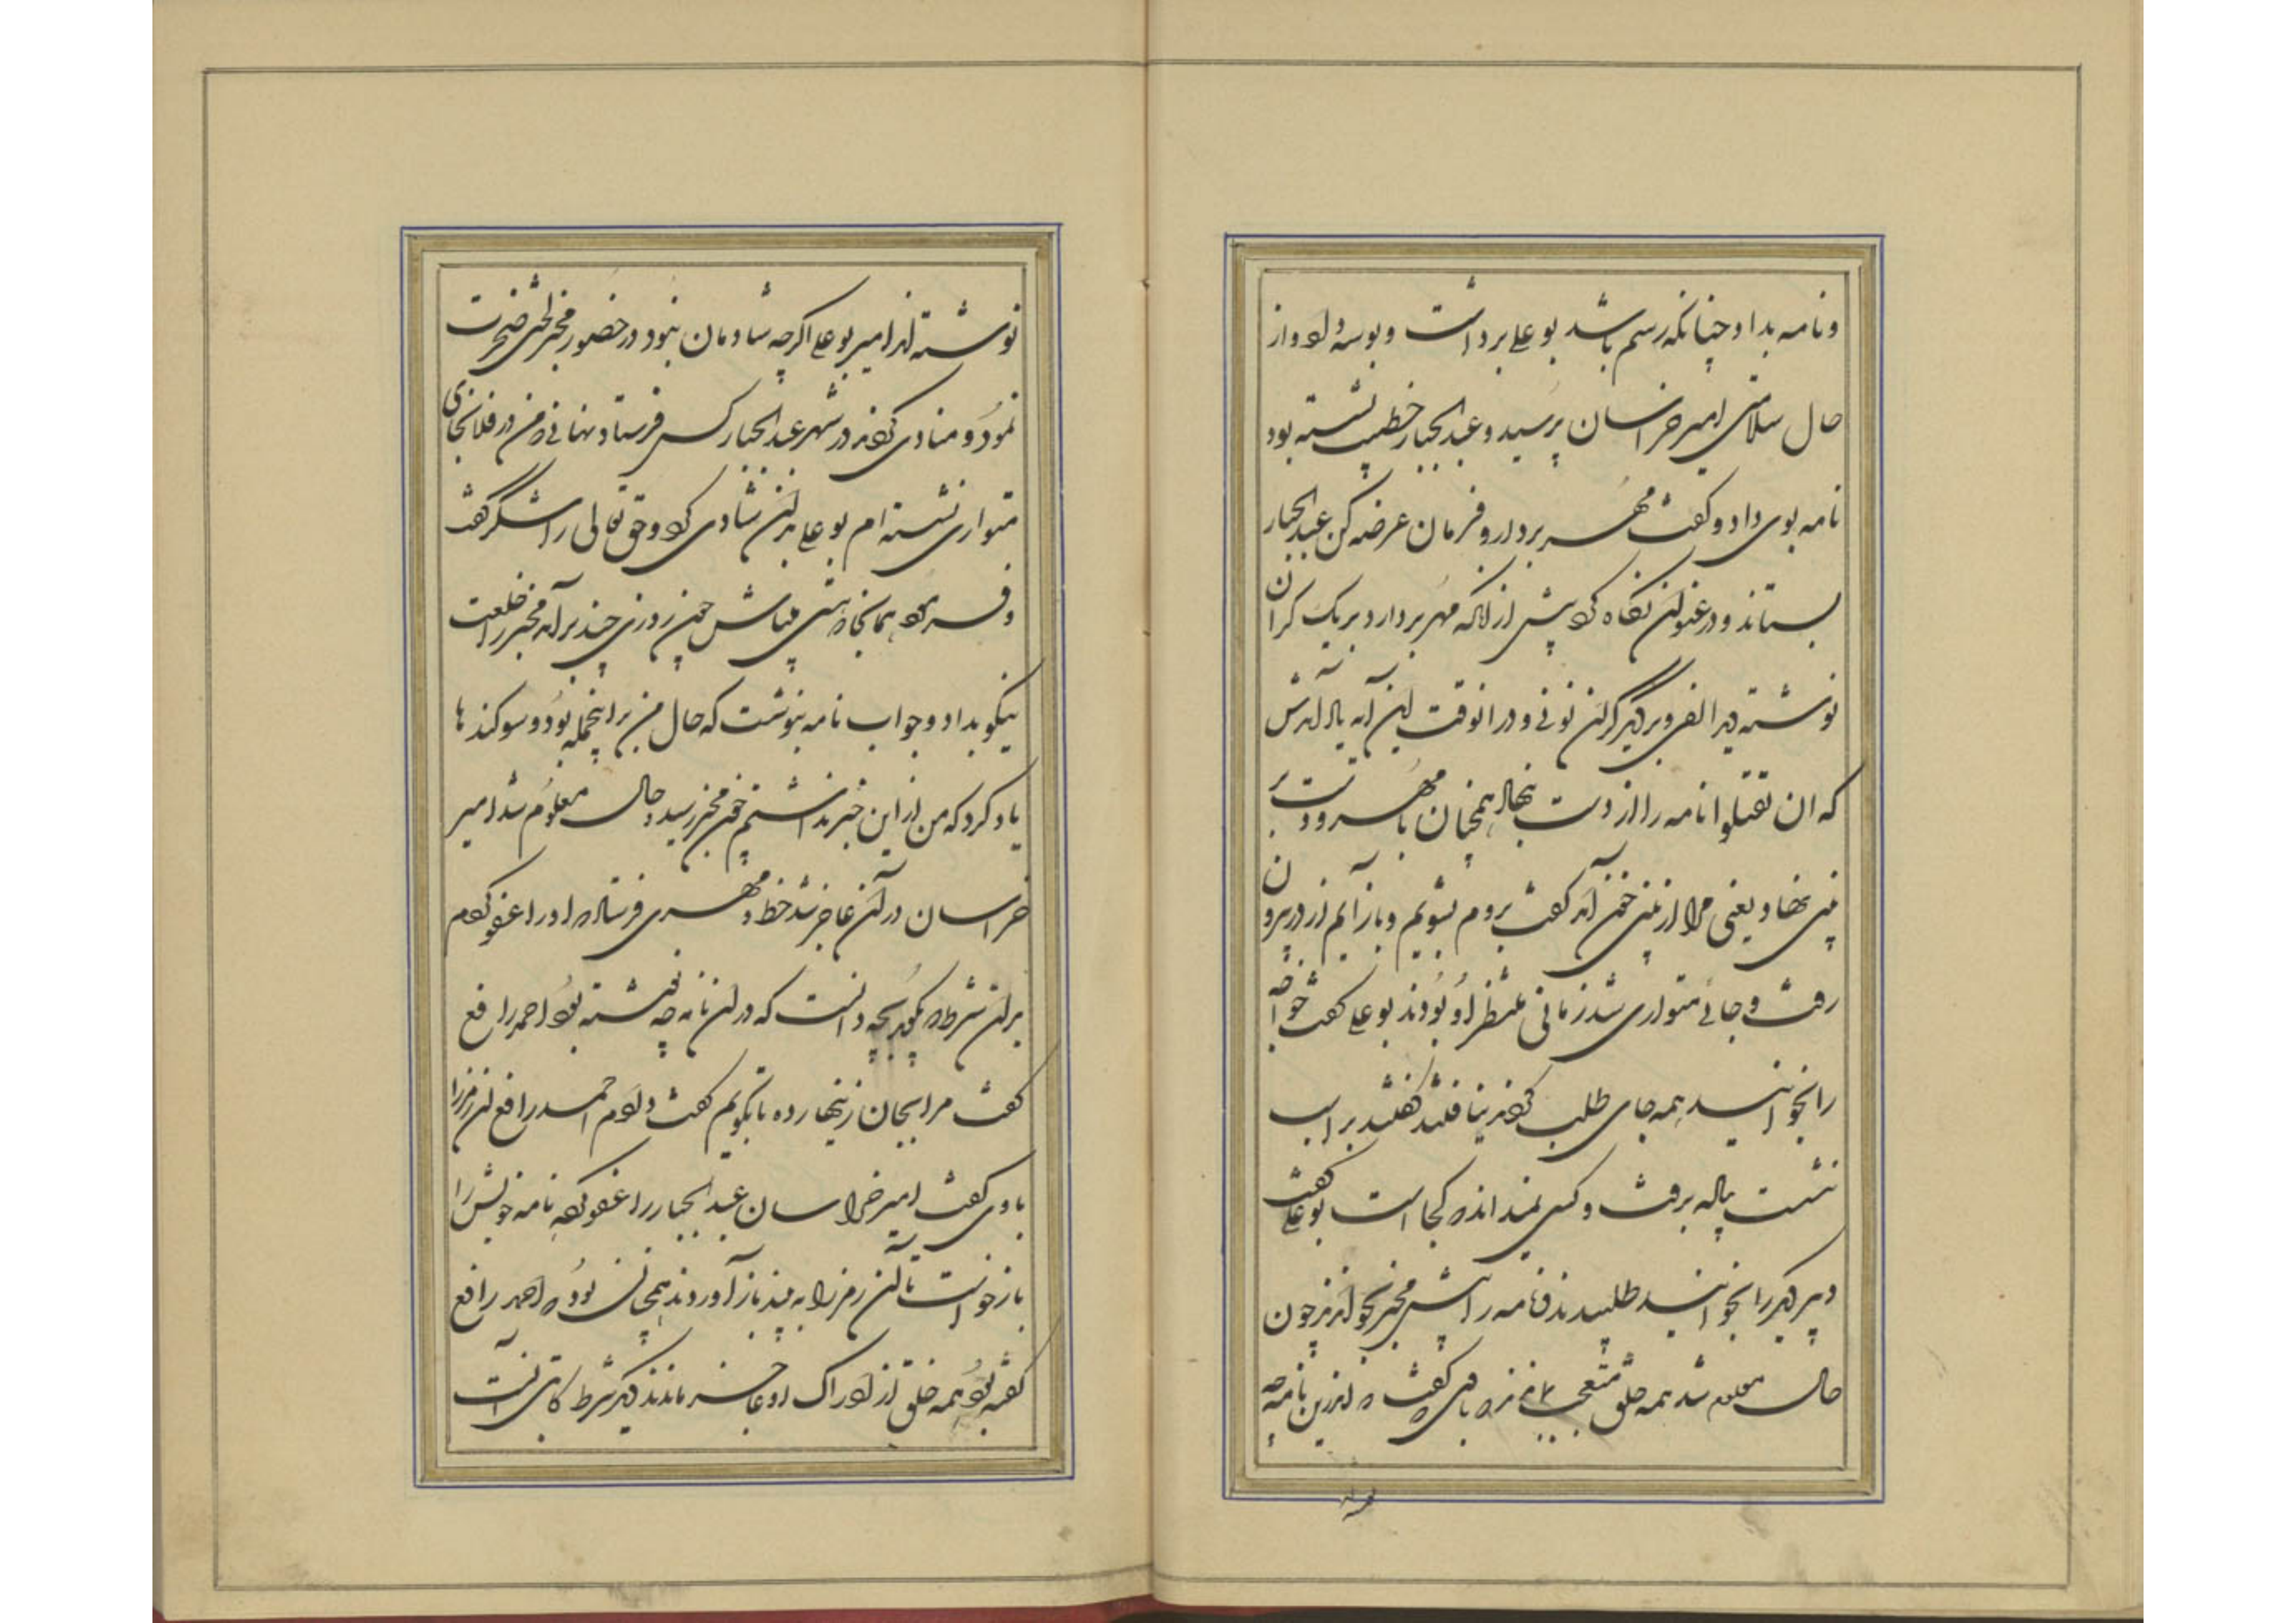 و نامه بداد و چنانکه رسم باشد بو علی برداشت و بوسه داد و از
حال سلامتی امیر خراسان پرسید و عبدالجبار خطیب نشسته بود
نامه بوی داد و گفت مهر بردار و فرمان عرضه کن عبدالجبار
بستاند و در عنوان نگاه کرد پیش از انکه مهر بردارد بر یک کران
نوشته دید الفی و بر دیگر کران نونی و در انوقت این آیه یاد آمدش
که ان تقتلوا نامه را از دست بنهاد همچنان با مهر و دست بر
بینی نهاد یعنی مرا از بینی خون آمد گفت بروم بشویم و باز آیم از در بیرون
رفت و جائی متواری شد زمانی منتظر او بودند بو علی گفت خواجه
را بخوانید همه جای طلب کردند نیافتند گفتند بر اسب
نشست پیاله برفت و کسی نمیداند که کجا است بو علی گفت
دبیر دیگر را بخوانید طلبیدند و نامه را پیش مخبر بخواندند چون
حال معلوم شد همه خلق متعجب بماندند که با وی گفت که اندرین نامه چه
نوشته‌اند امیر بو علی اگرچه شادمان نبود در حضور مخبر لختی ضجرت
نمود و منادی کردند در شهر عبدالجبار کس فرستاد نهانی که من در فلانجای
متواری نشسته ام بو علی بدان شادی کرد و حق تعالی را شکر گفت
و فرمود همانجا که هستی میباش چون روزی چند بر آمد مخبر را خلعت
نیکو بداد و جواب نامه بنوشت که حال من بر اینجمله بود و سوکندها
یاد کرد که من از این خبر نداشتم چون مخبر رسید و حال معلوم شد امیر
خراسان در آن عاجز شد خط و مهری فرستاد که او را عفو کردم
بر آن شرط که بگوید بچه دانست که در آن نامه چه نوشته بود احمد رافع
گفت مرا بجان زینهار ده تا بگویم گفت دادم احمد رافع آن رمز را
با وی گفت امیر خراسان عبدالجبار را عفو کرد نامه خویش را
باز خواست تا آن رمز را به بیند باز آوردند همچنان بود که احمد رافع
گفته بود همه خلق از ادراک او عاجز ماندند دیگر شرط کاتبی آنست